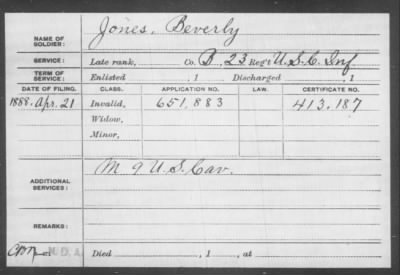 NAME OF SOLDIER: Jones, Beverly
SERVICE: Late rank, Co. D, 23 Reg't U.S.C. Inf
TERM OF SERVICE: Enlisted , 1 Discharged , 1
DATE OF FILING. CLASS. APPLICATION NO. LAW. CERTIFICATE NO.
1888. Apr. 21 Invalid, 651,883 413.187
Widow,
Minor,
ADDITIONAL SERVICES: M 9 U.S. Cav.
REMARKS:
N.D.A. Died , 1 , at